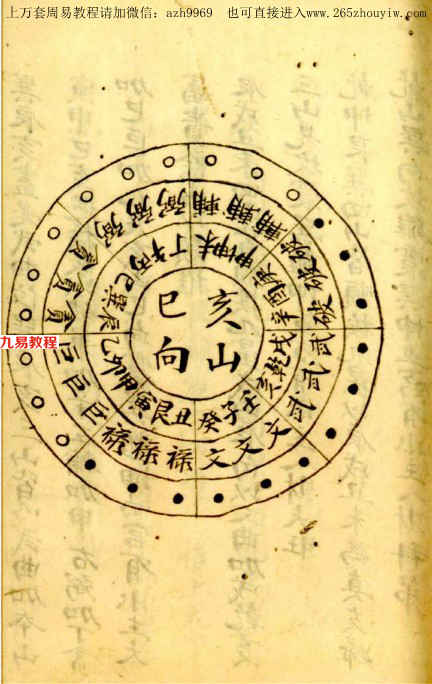 上万套周易教程请加微信：azh9969 也可直接进入www.265zhouyiw.com
九易教程
亥山
巳向
壬子癸
丑艮寅
甲卯乙
辰巽巳
丙午丁
未坤申
庚酉辛
戌乾亥
文文文
禄禄禄
巨巨巨
貪貪貪
弼弼弼
輔輔輔
破破破
武武武